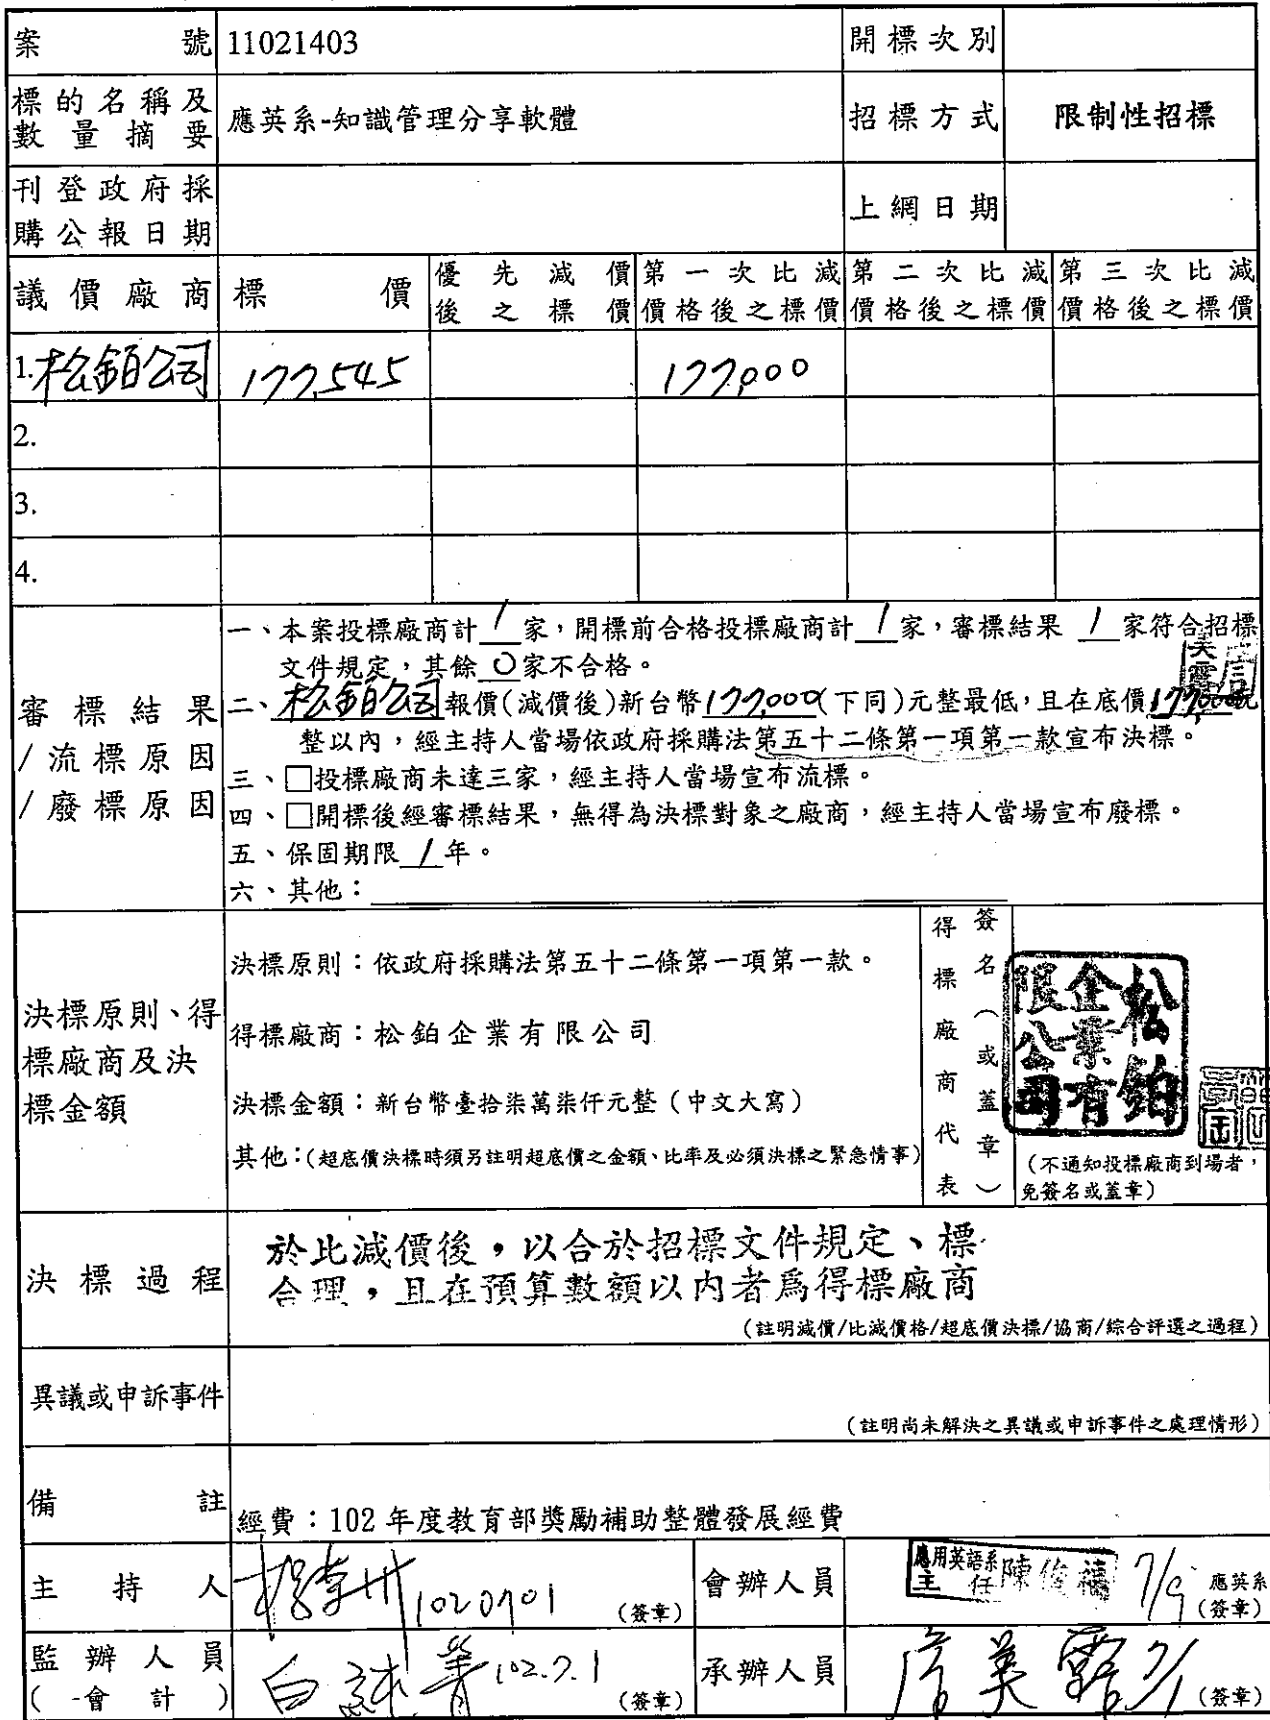 案號 11021403 開標次別
標的名稱及數量摘要 應英系-知識管理分享軟體 招標方式 限制性招標
刊登政府採購公報日期 上網日期
議價廠商 標價 優先減價後之標價 第一次比減價格後之標價 第二次比減價格後之標價 第三次比減價格後之標價
1.松鉑公司 177,545 177,000
2.
3.
4.
審標結果/流標原因/廢標原因
一、本案投標廠商計1家，開標前合格投標廠商計1家，審標結果 1家符合招標
文件規定，其餘0家不合格。
二、松鉑公司報價(減價後)新台幣177,000(下同)元整最低，且在底價177,000元
整以內，經主持人當場依政府採購法第五十二條第一項第一款宣布決標。
三、□投標廠商未達三家，經主持人當場宣布流標。
四、□開標後經審標結果，無得為決標對象之廠商，經主持人當場宣布廢標。
五、保固期限1年。
六、其他：
決標原則、得標廠商及決標金額
決標原則：依政府採購法第五十二條第一項第一款。
得標廠商：松鉑企業有限公司
決標金額：新台幣臺拾柒萬柒仟元整（中文大寫）
其他：(超底價決標時須另註明超底價之金額、比率及必須決標之緊急情事)
得標廠商代表簽名（或蓋章）
松鉑企業有限公司
（不通知投標廠商到場者，
免簽名或蓋章）
決標過程
於比減價後，以合於招標文件規定、標
合理，且在預算數額以內者為得標廠商
（註明減價/比減價格/超底價決標/協商/綜合評選之過程）
異議或申訴事件
（註明尚未解決之異議或申訴事件之處理情形）
備註 經費：102 年度教育部獎勵補助整體發展經費
主持人 1020701 （簽章） 會辦人員 應用英語系主任陳俊禧 7/9 應英系（簽章）
監辦人員（會計） 102.7.1 （簽章） 承辦人員 7/1 （簽章）